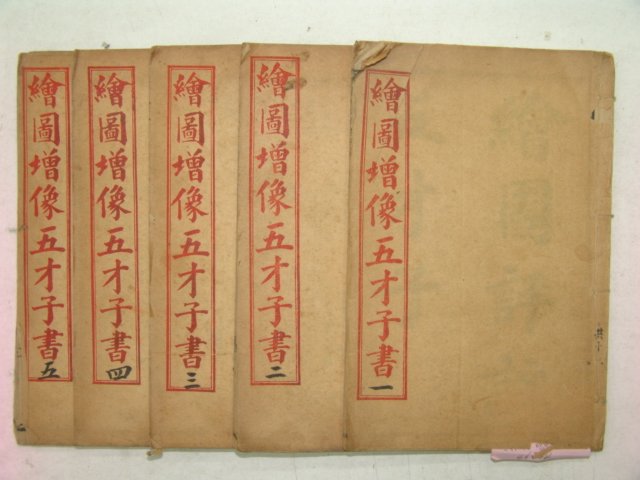 繪圖增像五才子書一
繪圖增像五才子書二
繪圖增像五才子書三
繪圖增像五才子書四
繪圖增像五才子書五